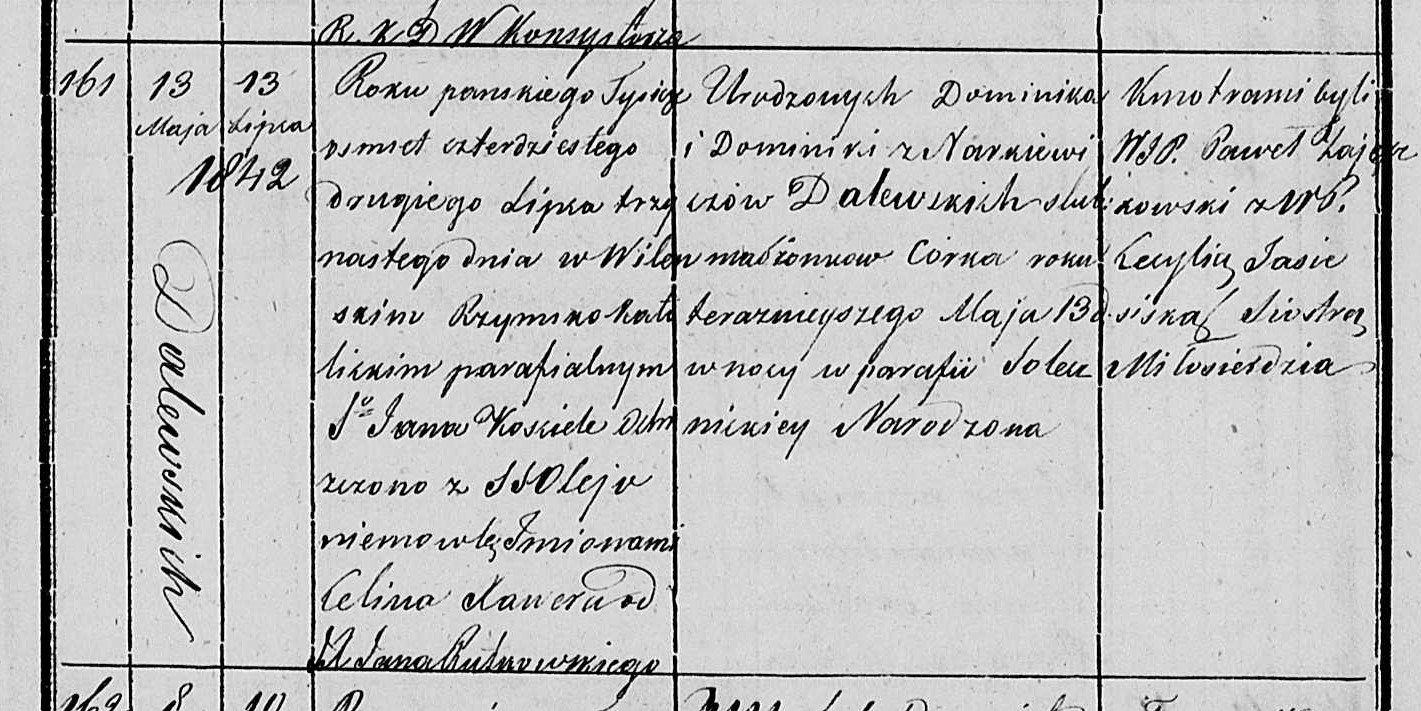 R. K D W Konsystorza
161
13 Maja
13 Lipca
1842
Dalewskich
Roku panskiego Tysiącz
osmset czterdziestego
drugiego Lipca trzy
nastego dnia w Wilen
skim Rzymsko Kato
lickim parafialnym
So Jana Kosciele Ochr
zczono z SSOleju
niemowlę Imionami
Celina Xawera od
X Jana Rutkowskiego
Urodzonych Dominika
i Dominiki z Narkiewi
czów Dalewskich slub:
małżonkow Corka roku
teraznieyszego Maja 13 d.
w nocy w parafii Solecz
nickiey Narodzona
Kmotrami byli
WJP. Paweł Zając
kowski z WP.
Cecylią Jasie
siską Siostrą
Miłosierdzia
162 8 10